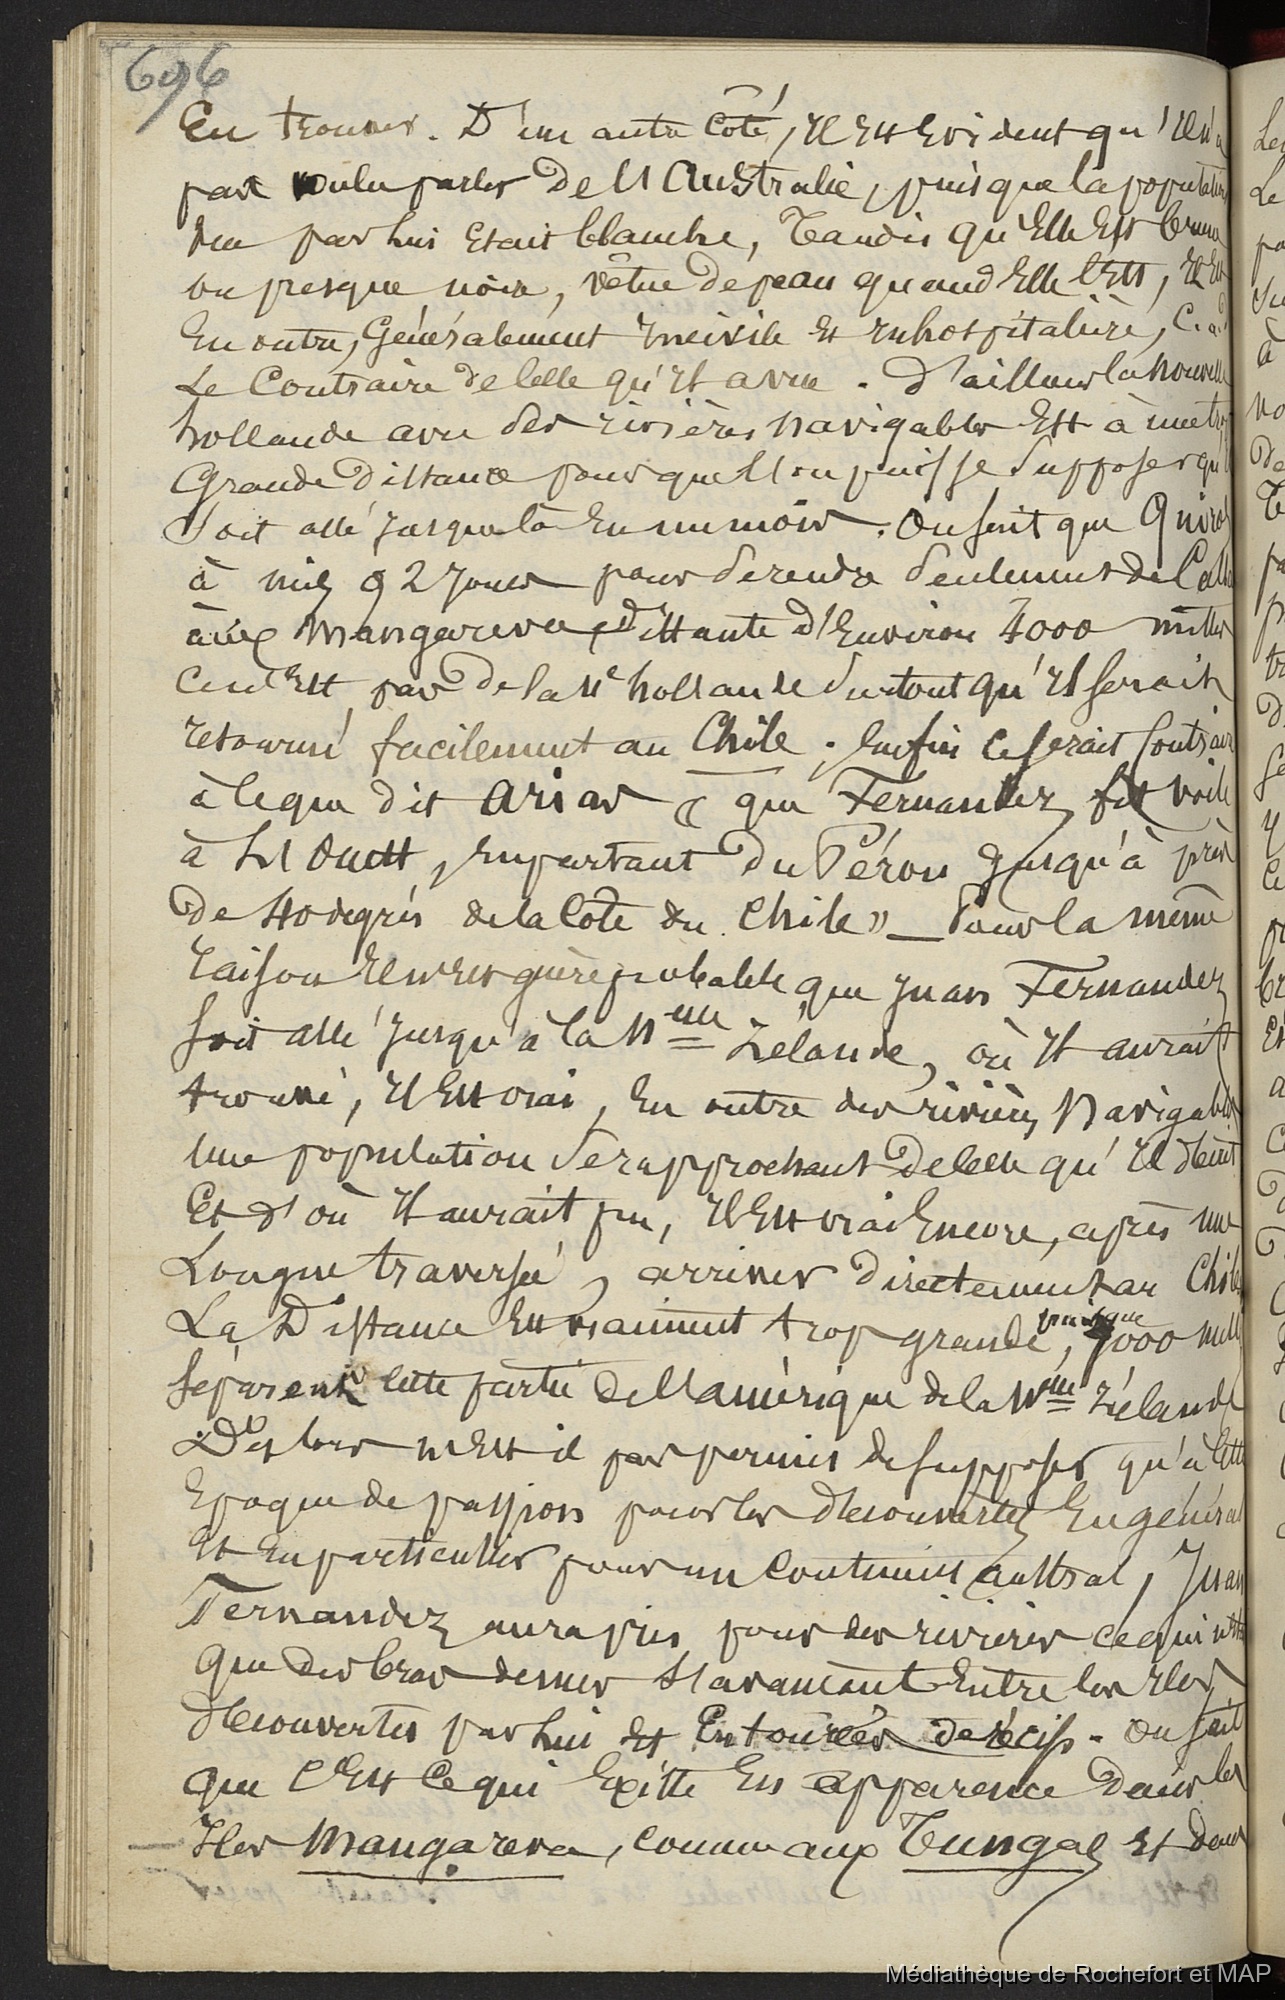 696
En trouver. D'un autre côté, Il Est Evident qu'Il n'a
pas voulu parler De l'Australie, puisque la population
vue par lui était blanche, Tandis qu'Elle Est brune
ou presque noire, vêtue De peau quand Elle l'Est, Et Est
En outre, Généralement incivile Et inhospitalière, C.a.d
Le Contraire de Celle qu'Il a vue. D'ailleurs la nouvelle
hollande avec des rivières navigables Est à une trop
Grande Distance pour que l'on puisse Supposer qu'il
Soit allé jusque là En un mois. On sait que Quiros
à mis 92 jours pour Se rendre Seulement de Callao
aux Mangareva, Distante d'Environ 4000 milles
Ce n'Est pas De la Nlle hollande Surtout qu'Il serait
retourné facilement au Chili. Enfin ce serait Contraire
à Ce que dit Arias « que Fernandez fit voile
à l'Ouest, En partant Du Pérou Jusqu'à près
De 40 degrés de la Côte du Chili » _ Pour la même
raison Il n'Est guère probable que Juan Fernandez
soit allé Jusqu'à la Nelle Zélande, où Il aurait
trouvé, Il Est vrai, En outre des rivières Navigables
Une population Se rapprochant De Celle qu'Il décrit
Et d'où Il aurait pu, Il Est vrai Encore, après une
Longue traversée, arriver Directement au Chili
La Distance Est vraiment trop grande, puisque 5000 milles
séparent Cette partie De l'amérique de la Nlle Zélande
Dès lors n'Est il pas permis de supposer qu'à Cette
Epoque de passion pour les découvertes En général
Et En particulier pour un Continent austral, Juan
Fernandez aura pris pour des rivières ce qui n'était
Que des bras de mer S'avançant Entre les Iles
découvertes par lui Et Entourées de récifs. On sait
Que C'Est Ce qui Existe En apparence Dans les
Iles Mangareva, comme aux Tungal Et dans
Médiathèque de Rochefort et MAP